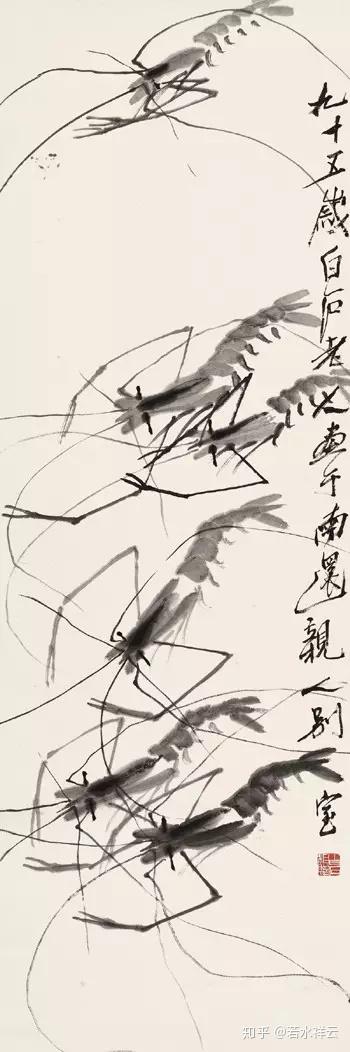 九十五歲白石老人畫于南還親人別室
知乎 @若水祥云